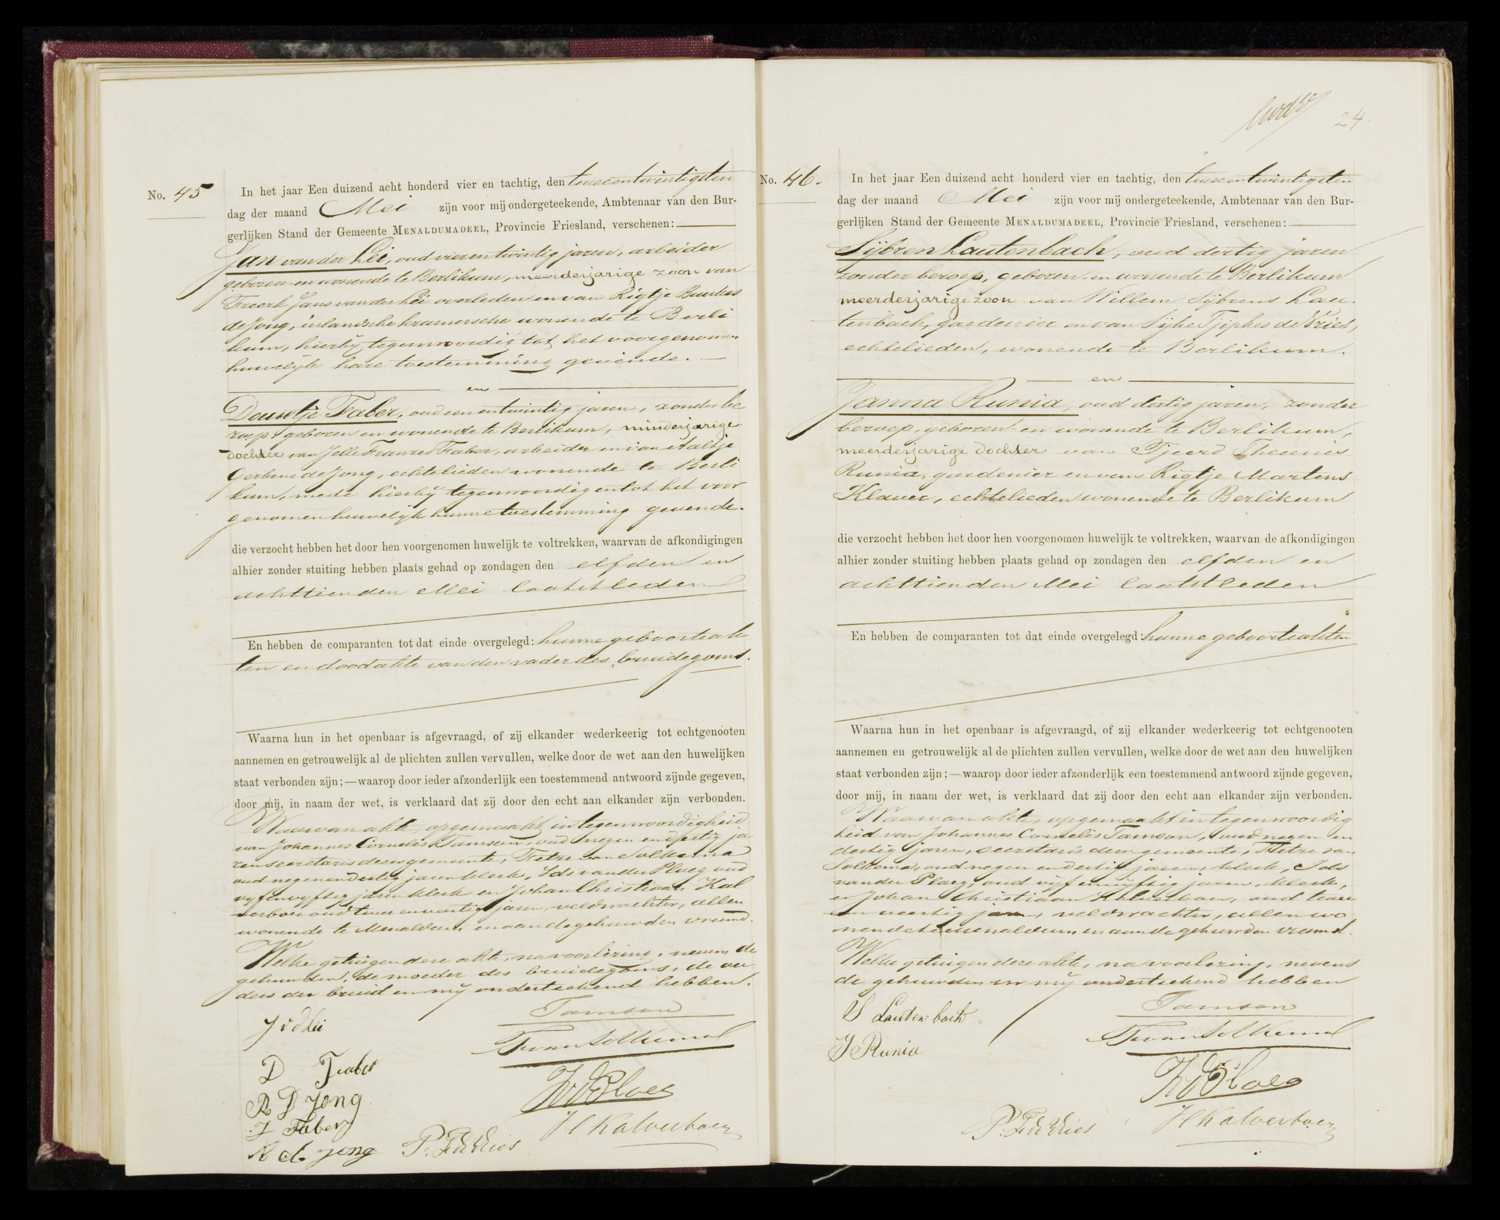 No. 45
In het jaar Een duizend acht honderd vier en tachtig, den tweeentwintigsten
dag der maand Mei zijn voor mij ondergeteekende, Ambtenaar van den Bur-
gerlijken Stand der Gemeente MENALDUMADEEL, Provincie Friesland, verschenen:
Jan van der Lei, oud vierentwintig jaren, arbeider
geboren en wonende te Berlikum, meerderjarige zoon van
Jans van der Lei overleden en van Rigtje
de Jong, inlandsche kramersche wonende te Berli
kum, hierbij tegenwoordig tot het voorgenomen
huwelijk hare toestemming gevende.
en
Douwtje Faber, oud eenentwintig jaren, zonder be
roep, geboren en wonende te Berlikum, minderjarige
dochter van Jelle Franzes Faber, arbeider en van Aaltje
Gerbens de Jong, echtelieden wonende te Berli
kum, mede hierbij tegenwoordig en tot het voor
genomen huwelijk hunne toestemming gevende.
die verzocht hebben het door hen voorgenomen huwelijk te voltrekken, waarvan de afkondigingen
alhier zonder stuiting hebben plaats gehad op zondagen den elfden en
achttienden Mei laatstleden
En hebben de comparanten tot dat einde overgelegd: hunne geboorteak
ten en doodakte van den vader des bruidegoms.
Waarna hun in het openbaar is afgevraagd, of zij elkander wederkeerig tot echtgenooten
aannemen en getrouwelijk al de plichten zullen vervullen, welke door de wet aan den huwelijken
staat verbonden zijn;—waarop door ieder afzonderlijk een toestemmend antwoord zijnde gegeven,
door mij, in naam der wet, is verklaard dat zij door den echt aan elkander zijn verbonden.
Waarvan akte, opgemaakt in tegenwoordigheid
van Johannes Cornelis Tamson, oud negen en dertig ja
ren secretaris dezer gemeente, Fetze van Solkema
oud negenendertig jaren klerk, Ids van der Ploeg oud
vijfenvijftig jaren klerk en Johan Christiaan Kal
verboer oud twee en veertig jaren, veldwachter, allen
wonende te Menaldum en aan de gehuwden vreemd.
Welke getuigen deze akte, na voorlezing, nevens de
gehuwden, de moeder des bruidegoms, de ou
ders der bruid en mij onderteekend hebben.
J v d Lei
Tamson
F van Solkema
D Faber
I v d Ploeg
R D Jong
J Faber
A d Jong
P. F de Vries
J C Kalverboer
24
No. 46.
In het jaar Een duizend acht honderd vier en tachtig, den tweeentwintigsten
dag der maand Mei zijn voor mij ondergeteekende, Ambtenaar van den Bur-
gerlijken Stand der Gemeente MENALDUMADEEL, Provincie Friesland, verschenen:
Sijbren Lautenbach, oud dertig jaren
zonder beroep, geboren en wonende te Berlikum
meerderjarige zoon van Willem Sijbrens Lau-
tenbach, gardenier en van Sijke Tjipkes de Vries,
echtelieden, wonende te Berlikum.
en
Janna Runia, oud dertig jaren, zonder
beroep, geboren en wonende te Berlikum,
meerderjarige dochter van Tjeerd Theunis
Runia, gardenier en van Rigtje Martens
Klaver, echtelieden wonende te Berlikum
die verzocht hebben het door hen voorgenomen huwelijk te voltrekken, waarvan de afkondigingen
alhier zonder stuiting hebben plaats gehad op zondagen den elfden en
achttienden Mei laatstleden
En hebben de comparanten tot dat einde overgelegd hunne geboorteakten
Waarna hun in het openbaar is afgevraagd, of zij elkander wederkeerig tot echtgenooten
aannemen en getrouwelijk al de plichten zullen vervullen, welke door de wet aan den huwelijken
staat verbonden zijn;—waarop door ieder afzonderlijk een toestemmend antwoord zijnde gegeven,
door mij, in naam der wet, is verklaard dat zij door den echt aan elkander zijn verbonden.
Waarvan akte, opgemaakt in tegenwoordig
heid van Johannes Cornelis Tamson, oud negen en
dertig jaren, secretaris dezer gemeente, Fetze van
Solkema, oud negen en dertig jaren, klerk, Ids
van der Ploeg, oud vijf en vijftig jaren, klerk,
en Johan Christiaan Kalverboer, oud twee
en veertig jaren, veldwachter, allen wo
nende te Menaldum en aan de gehuwden vreemd.
Welke getuigen deze akte, na voorlezing, nevens
de gehuwden en mij onderteekend hebben
S Lautenbach
Tamson
J Runia
F van Solkema
I v d Ploeg
P. F de Vries
J C Kalverboer